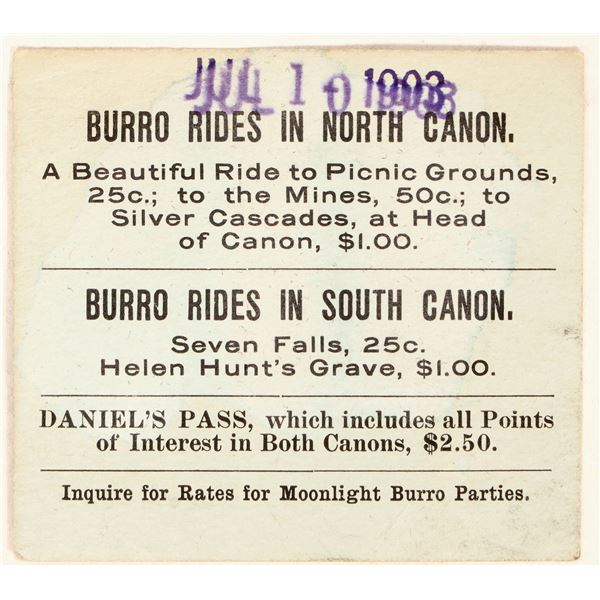 JUL 10 1903
BURRO RIDES IN NORTH CANON.
A Beautiful Ride to Picnic Grounds,
25c.; to the Mines, 50c.; to
Silver Cascades, at Head
of Canon, $1.00.
BURRO RIDES IN SOUTH CANON.
Seven Falls, 25c.
Helen Hunt's Grave, $1.00.
DANIEL'S PASS, which includes all Points
of Interest in Both Canons, $2.50.
Inquire for Rates for Moonlight Burro Parties.